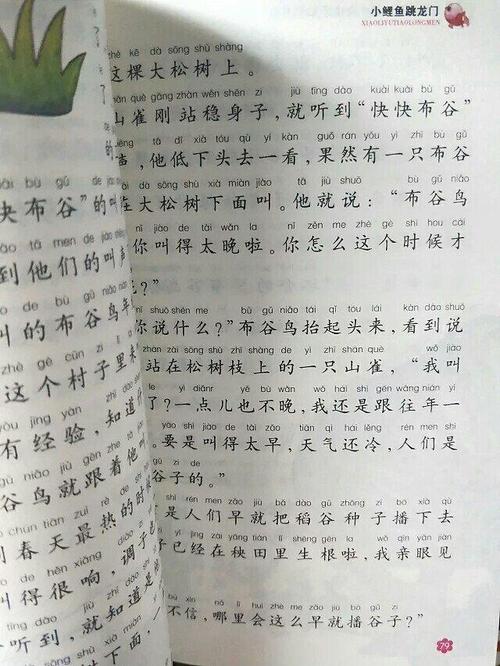 小鲤鱼跳龙门
XIAOLIYUTIAOLONGMEN
zhè kē dà sōng shù shàng
这棵大松树上。
shān què gāng zhàn wěn shēn zi jiù tīng dào kuài kuài bù gǔ
山雀刚站稳身子，就听到“快快布谷”
tā dī xià tóu qù yí kàn guǒ rán yǒu yì zhī bù gǔ
声，他低下头去一看，果然有一只布谷
zài dà sōng shù xià miàn jiào tā jiù shuō bù gǔ niǎo
在大松树下面叫。他就说：“布谷鸟
nǐ jiào de tài wǎn la nǐ zěn me zhè gè shí hou cái
你叫得太晚啦。你怎么这个时候才
？”
nǐ shuō shén me bù gǔ niǎo tái qǐ tóu lái kàn dào shuō
你说什么？”布谷鸟抬起头来，看到说
zhàn zài sōng shù zhī shàng de yì zhī shān què wǒ jiào
站在松树枝上的一只山雀，“我叫
le yì diǎnr yě bù wǎn wǒ hái shi gēn wǎng nián yí
了？一点儿也不晚，我还是跟往年一
yào shi jiào de tài zǎo tiān qì hái lěng rén men shì
要是叫得太早，天气还冷，人们是
gǔ zi de
谷子的。”
shì rén men zǎo jiù bǎ dào gǔ zhǒng zi bō xià qù
是人们早就把稻谷种子播下去
yǐ jīng zài yāng tián lǐ shēng gēn la wǒ qīn yǎn jiàn
子已经在秧田里生根啦，我亲眼见
bù xìn nǎ lǐ huì zhè me zǎo jiù bō gǔ zi
不信，哪里会这么早就播谷子？”
79
快布谷”的叫
到他们的叫声
叫的布谷鸟年
这个村子里来
有经验，知道
谷鸟就跟着他
春天最热的时
叫得很响，调子
听到，就知道是